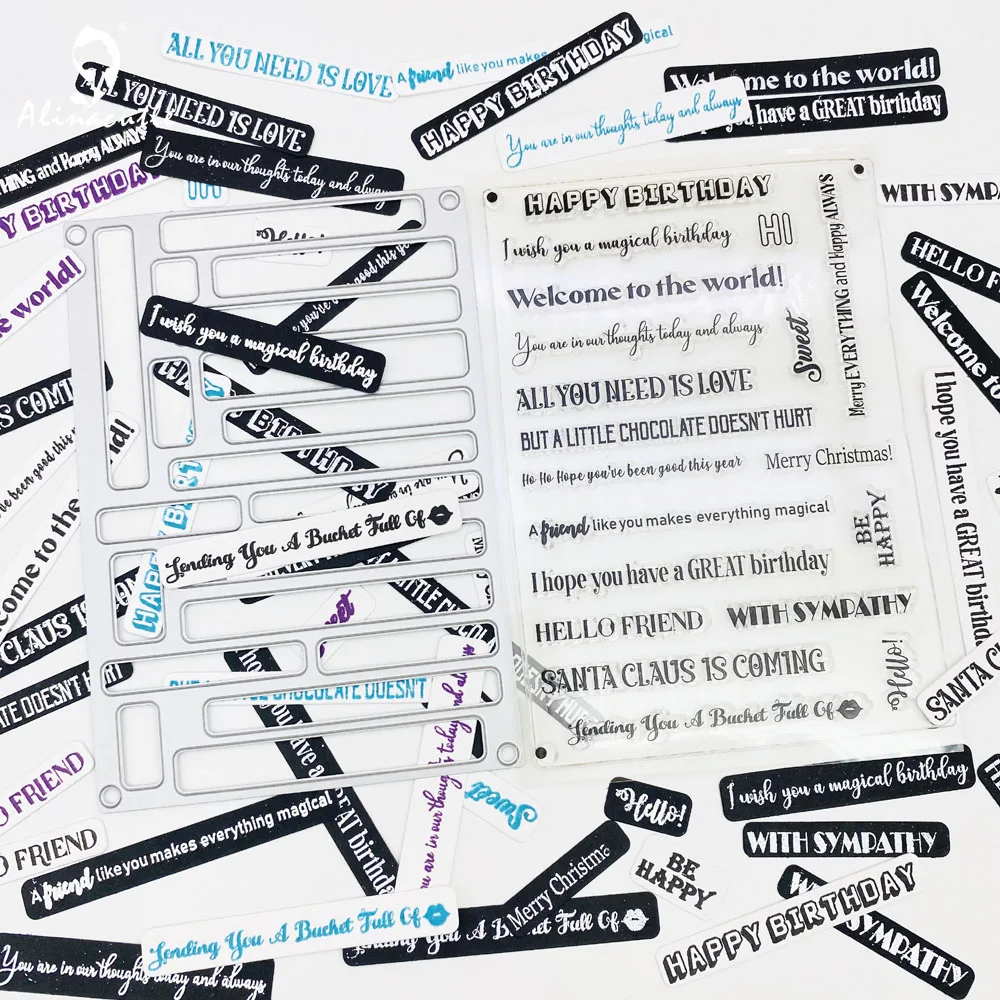 ALL YOU NEED IS LOVE
A friend like you makes
gical
HAPPY BIRTHDAY
Welcome to the world!
you have a GREAT birthday
You are in our thoughts today and always
Alinacutle
ALL YOU NEED IS LOVE
THING and Happy ALWAYS
You are in our thoughts today and always
Y BIRTHDAY
WITH SYMPA
HAPPY BIRTHDAY
I wish you a magical birthday
HI
Welcome to the world!
You are in our thoughts today and always
Sweet
Merry EVERYTHING and Happy ALWAYS
ALL YOU NEED IS LOVE
BUT A LITTLE CHOCOLATE DOESN'T HURT
Ho Ho Hope you've been good this year
Merry Christmas!
A friend like you makes everything magical
BE
HAPPY
I hope you have a GREAT birthday
HELLO FRIEND
WITH SYMPATHY
SANTA CLAUS IS COMING
Hello!
Sending You A Bucket Full Of
Hello!
you're been good this ye
I wish you a magical birthday
Sending You A Bucket Full Of
HAPP
sweet
CHOCOLATE DOESN'T
e world!
S COMI
've been good this
come to the
CLAUS I
ATE DOESN'T HURT
O FRIEND
O FRIEND
HELLO F
Welcome to
I hope you have a GREAT birthda
SANTA C
A friend like you makes everything magical
you have a
EAT birthday
ou are in our though
s today
nd al
Sweet
Hello!
I wish you a magical birthday
WITH SYMPATHY
BE
HAPPY
Merry Christma
HAPPY BIRTHDAY
W
SYMPATHY
Sending You A Bucket Full Of
ding You A B
et Full Of
You are in our thoughts today and always